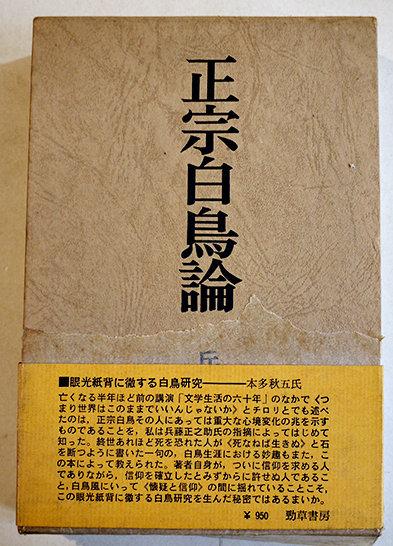 正宗白鳥論
兵
■眼光紙背に徹する白鳥研究――本多秋五氏
亡くなる半年ほど前の講演「文学生活の六十年」のなかで〈つ
まり世界はこのままでいいんじゃないか〉とチロリとでも述べ
たのは、正宗白鳥その人にあっては重大な心境変化の兆を示す
ものであることを，私は兵藤正之助氏の指摘によってはじめて
知った。終世あれほど死を恐れた人が〈死なねば生きぬ〉と石
を断つように書いた一句の，白鳥生涯における妙趣もまた，こ
の本によって教えられた。著者自身が，ついに信仰を求める人
でありながら，信仰を確立したとみずからに許せぬ人であるこ
と，白鳥風にいって〈懐疑と信仰〉の間に揺れていることこそ，
この眼光紙背に徹する白鳥研究を生んだ秘密ではあるまいか。
¥ 950 勁草書房